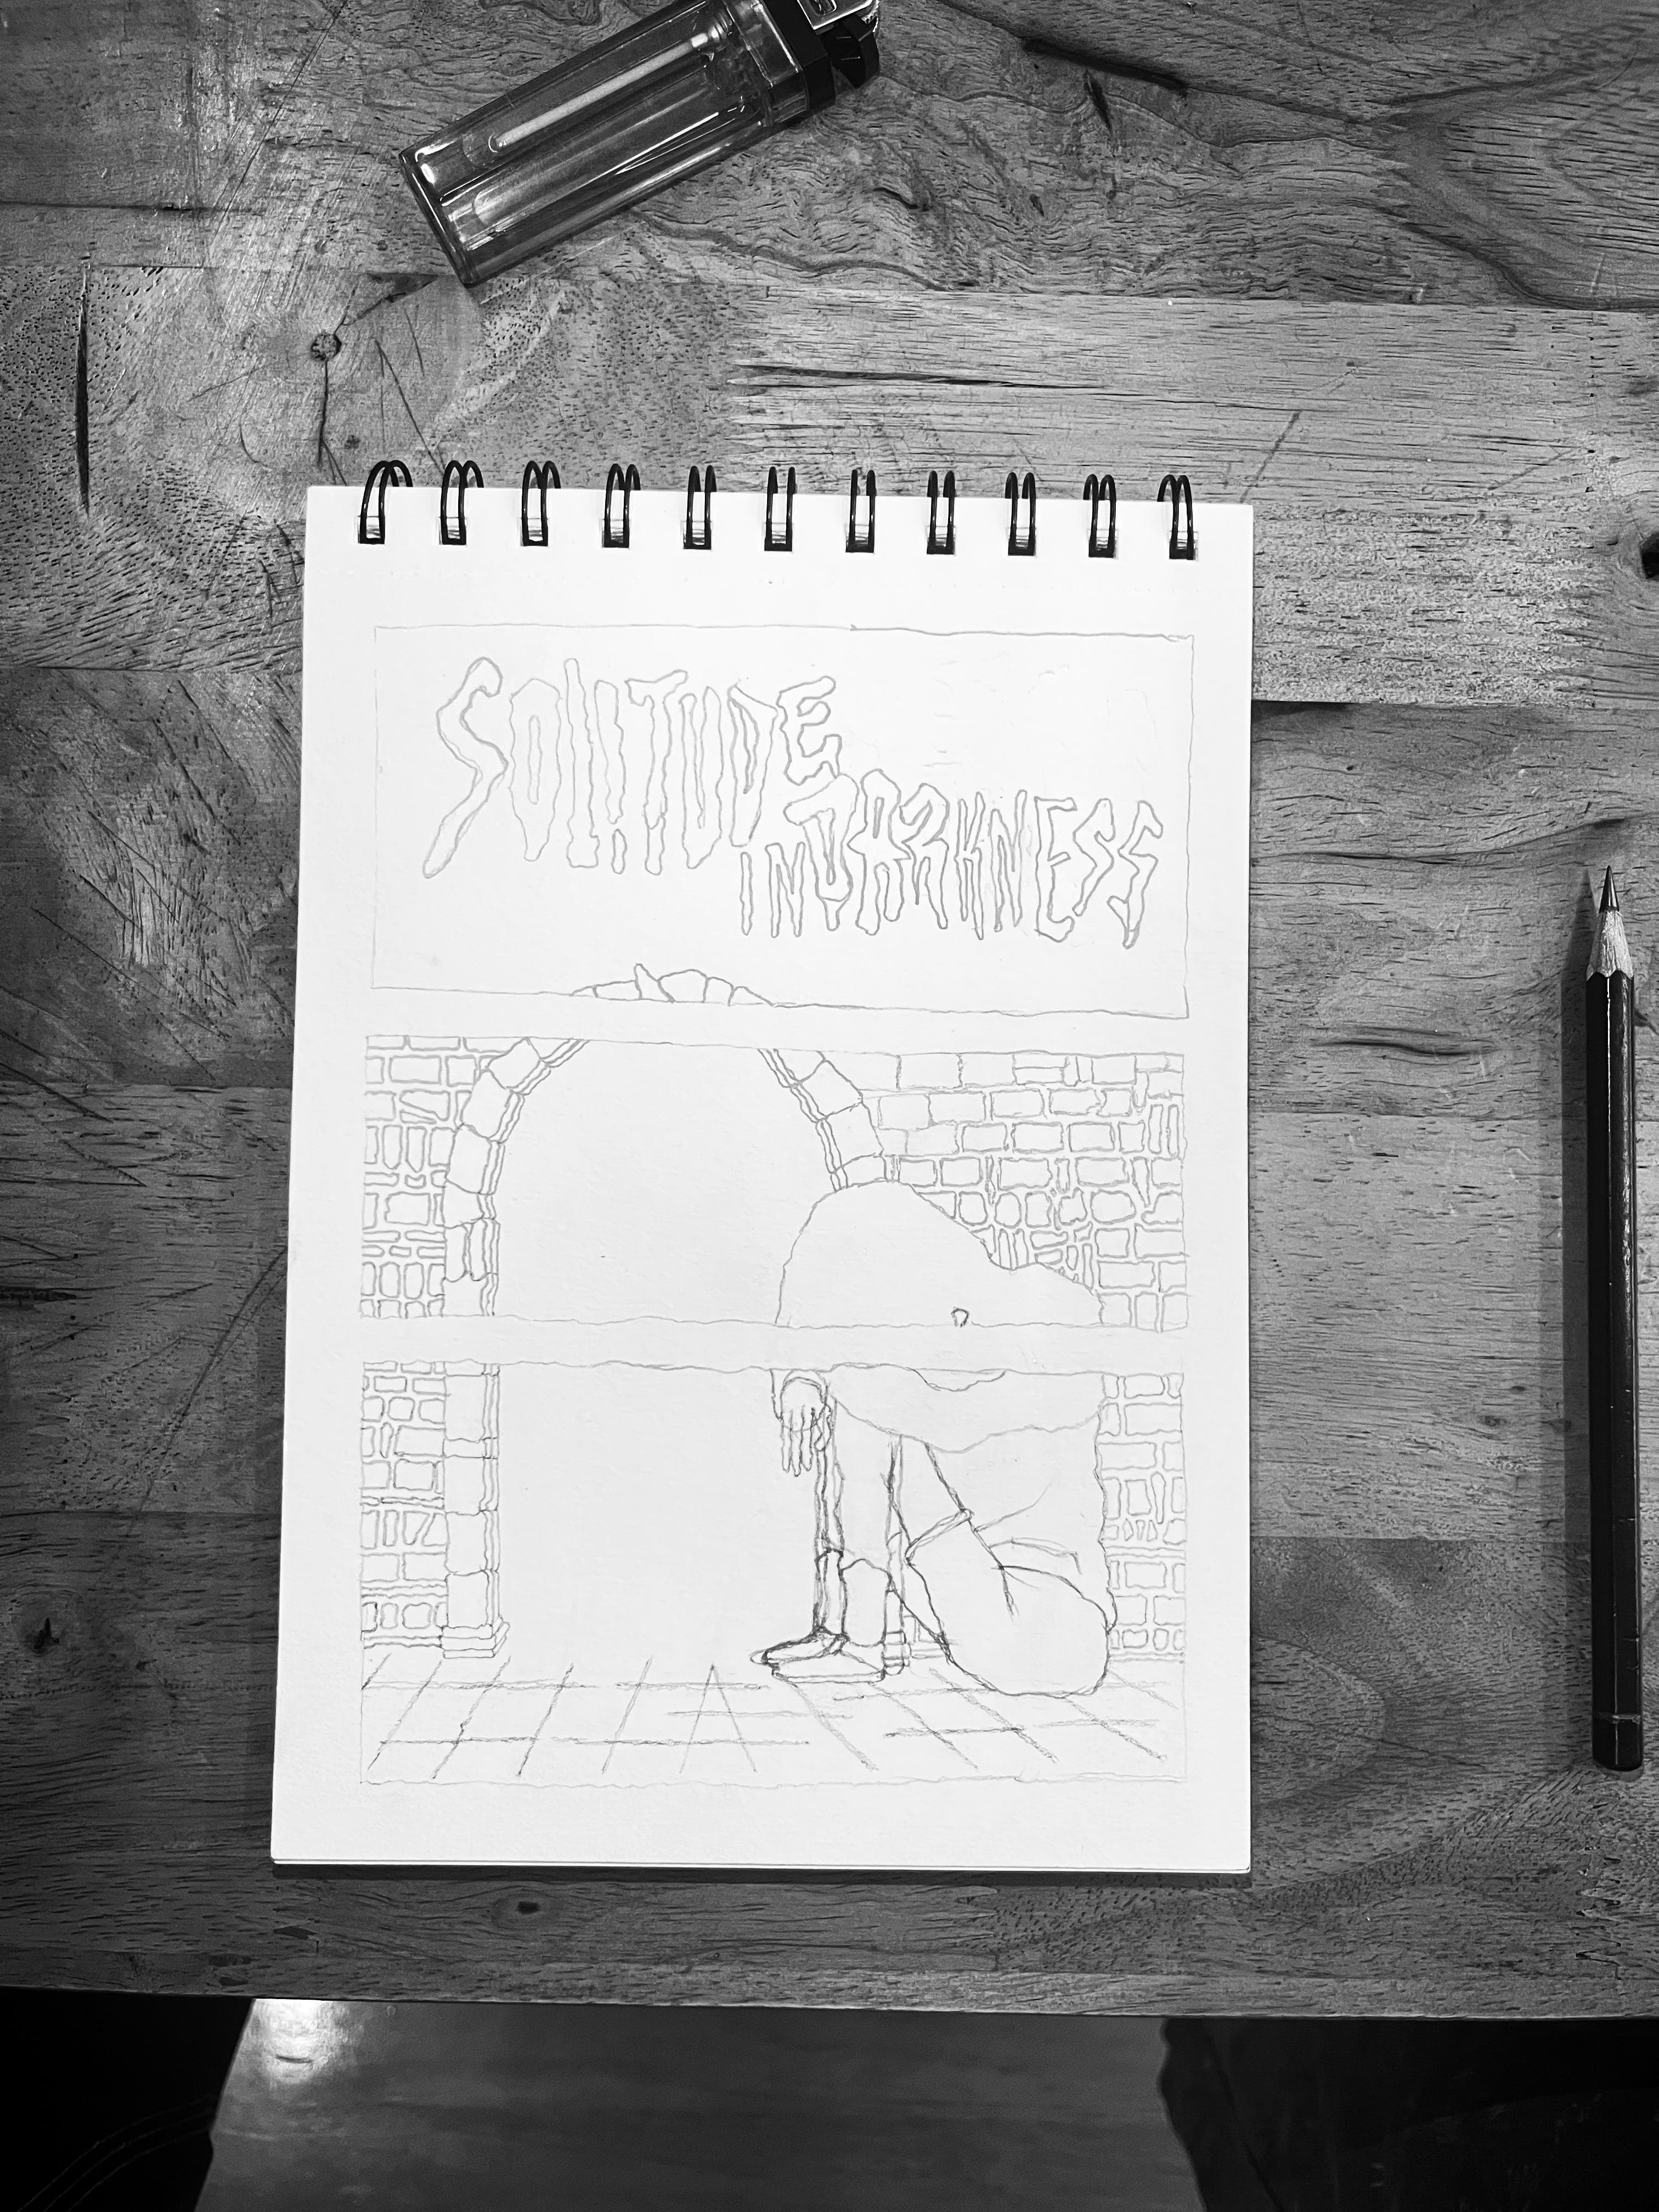 SOLITUDE
IN DARKNESS